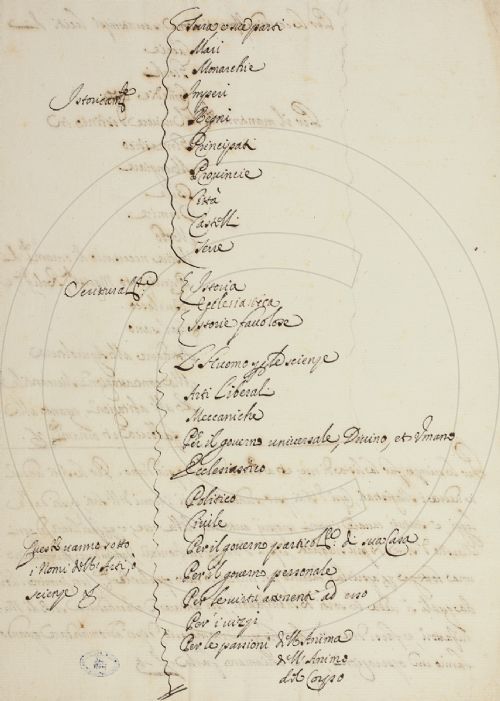 Terra e sue parti
Mari
Monarchie
Istoricam.te
Imperi
Regni
Principati
Provincie
Città
Castelli
Terre
Scritturali
Istoria
Ecclesiastica
Istorie favolose
L'Huomo p le scienze
Arti Liberali
Meccaniche
Per il governo universale, Divino, et Vmano
Ecclesiastico
Politico
Civile
Queste vanno sotto
i Nomi dell'Arti, ò
scienze
Per il governo particol.re di sua Casa
Per il governo personale
Per le virtù attenenti ad esso
Per i vizzi
Per le passioni dell'Anima
dell'Animo
del Corpo